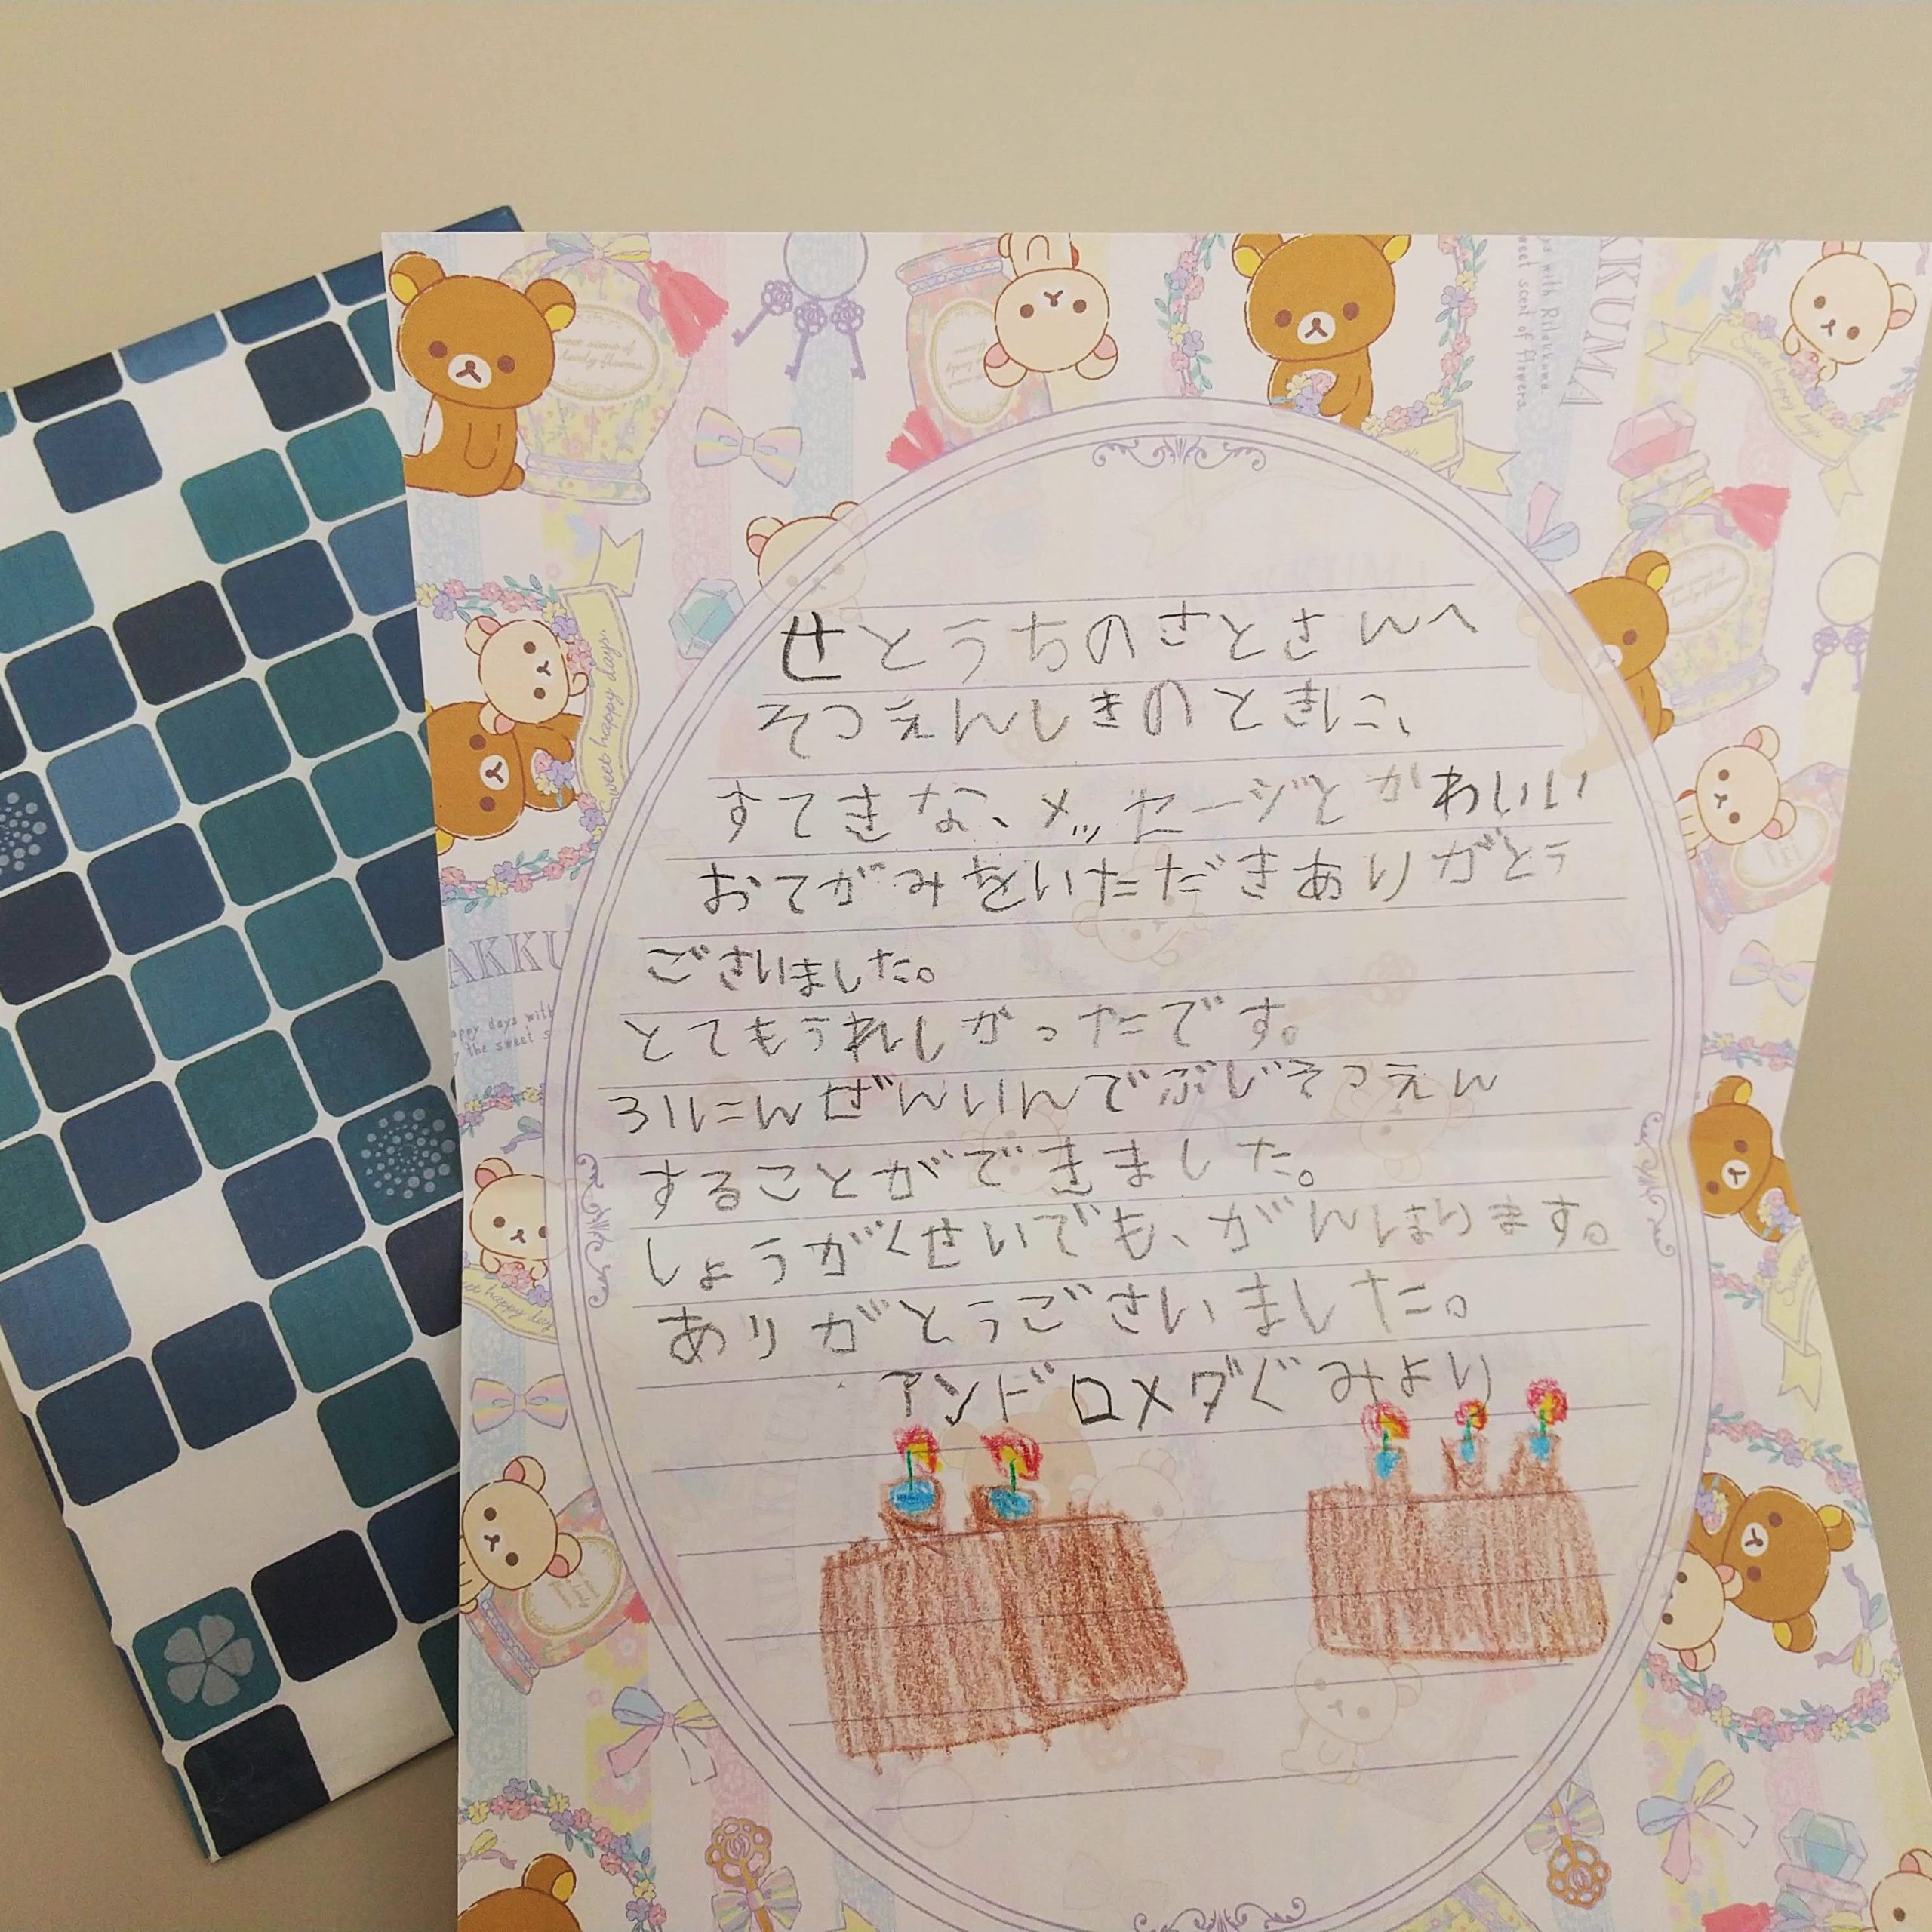 せとうちのさとさんへ
そつえんしきのときに、
すてきな、メッセージとかわいい
おてがみをいただきありがとう
ございました。
とてもうれしかったです。
31にんぜんいんでぶじそつえん
することができました。
しょうがくせいでも、がんばります。
ありがとうございました。
アンドロメダぐみより
AKKU
KUMA
Sweet happy days.
Sweet happy days.